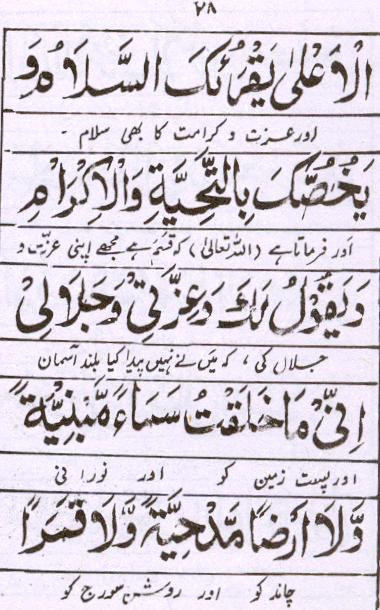 ٢٨
الْاَعْلٰى يَقْرَئُكَ السَّلَامُ وَ
اور عزت و کرامت کا بھی سلام ۔
يَخُصُّكَ بِالتَّحِيَّةِ وَالْاِكْرَامِ
اور فرماتا ہے (اللہ تعالیٰ) کہ قسم ہے مجھے اپنی عزت و
وَيَقُوْلُ لَكَ وَعِزَّتِيْ وَجَلَالِيْ
جلال کی، کہ میں نے نہیں پیدا کیا بلند آسمان
اِنِّيْ مَا خَلَقْتُ سَمَاءً مَّبْنِيَّةً
اور پست زمین کو اور نورانی
وَّلَا اَرْضًا مَّدْحِيَّةً وَّلَا قَمَرًا
چاند کو اور روشن سورج کو